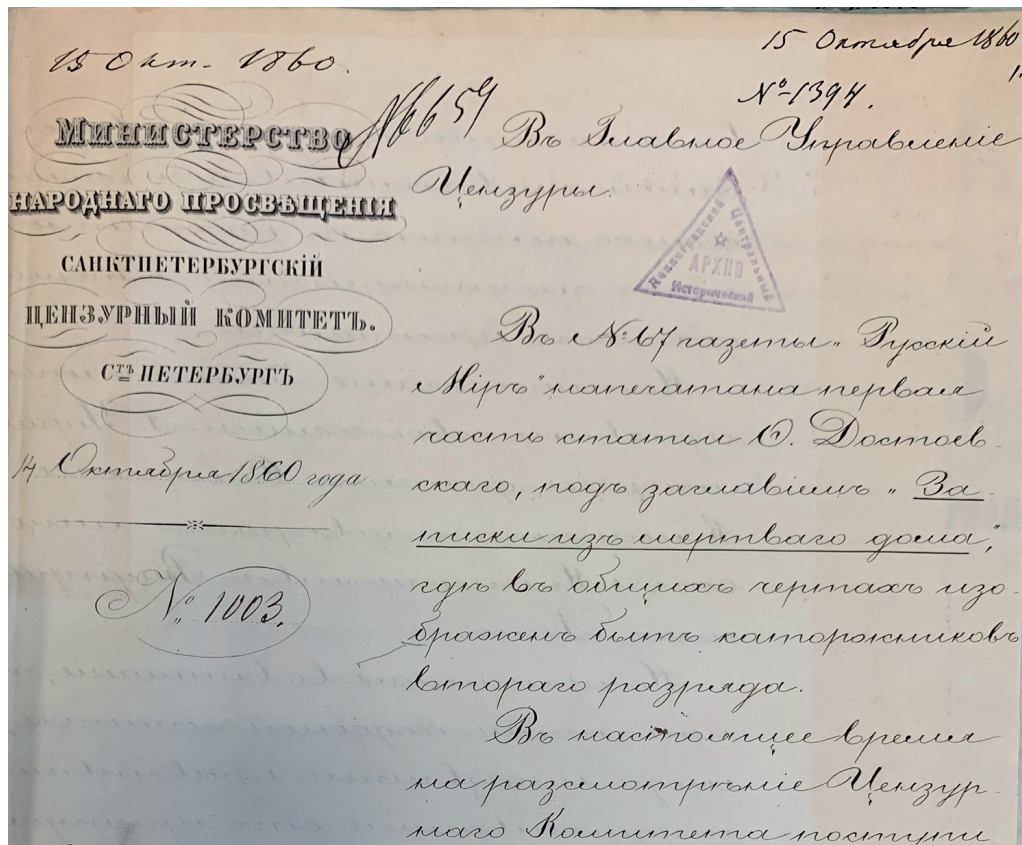 15 Окт. 1860.
15 Октября 1860
№ 1394.
№ 1659
МИНИСТЕРСТВО
НАРОДНАГО ПРОСВѢЩЕНІЯ
САНКТПЕТЕРБУРГСКІЙ
ЦЕНЗУРНЫЙ КОМИТЕТЪ.
СТЪ ПЕТЕРБУРГЪ
14 Октября 1860 года
№ 1003.
Въ Главное Управленіе
Цензуры.
Ленинградский Центральный
АРХИВ
Исторический
Въ № 67 газеты „Русскій
Міръ" напечатана первая
часть статьи Ѳ. Достоев-
скаго, подъ заглавіемъ „За-
писки изъ мертваго дома",
гдѣ въ общихъ чертахъ изо-
браженъ бытъ каторжниковъ
втораго разряда.
Въ настоящее время
на разсмотрѣніе Цензур-
наго Комитета поступи